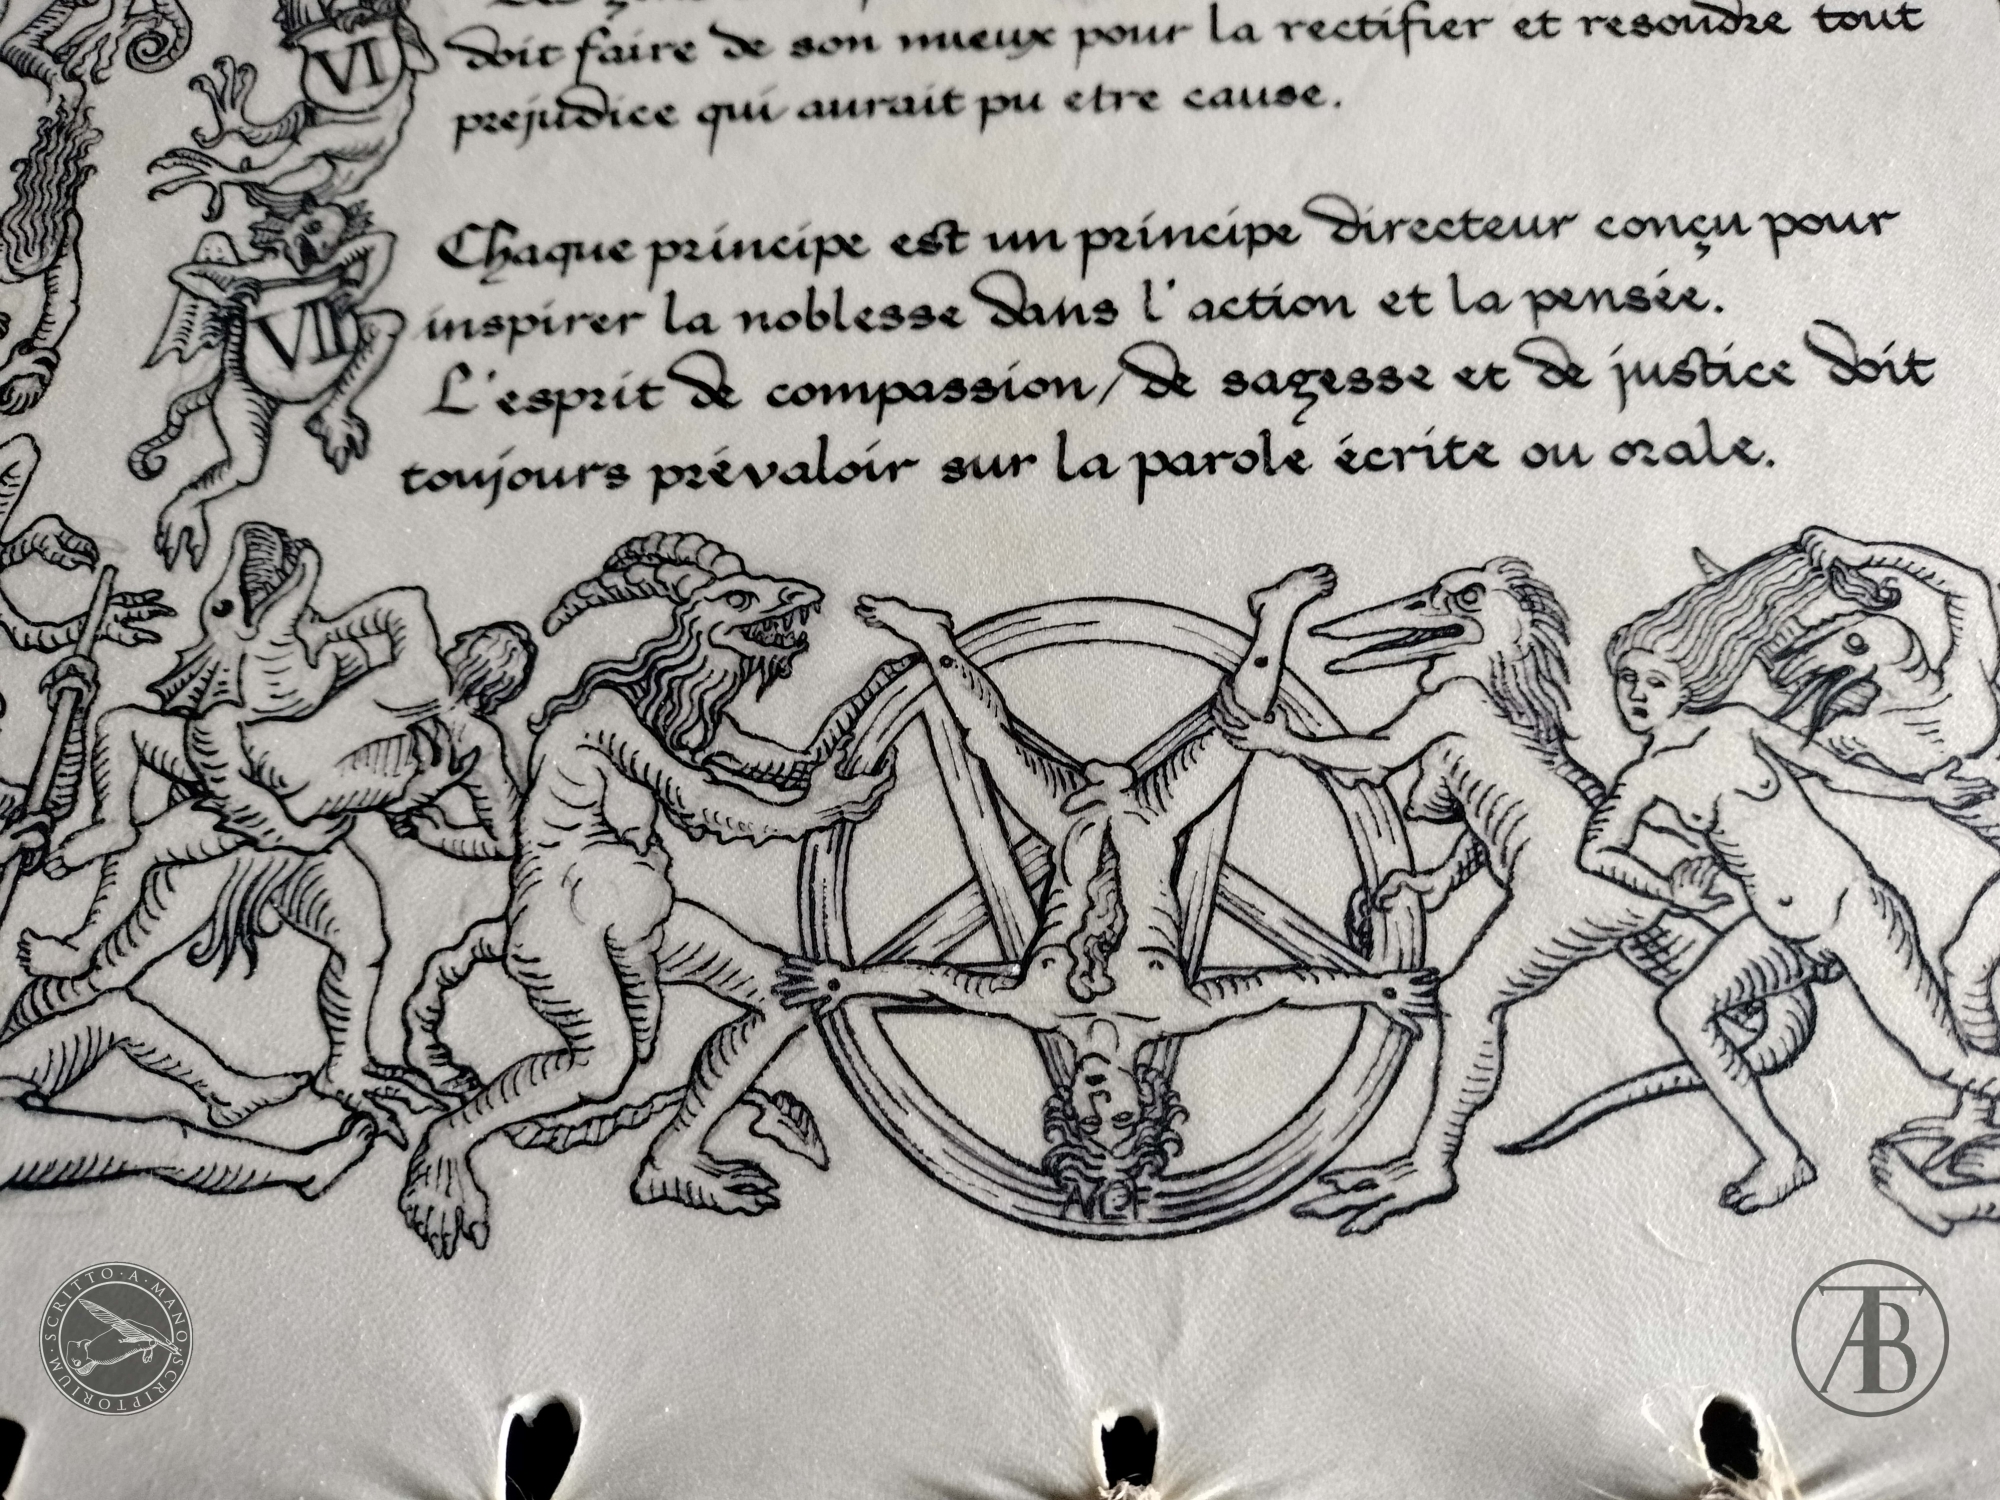 VI
doit faire de son mieux pour la rectifier et resoudre tout
prejudice qui aurait pu etre cause.
Chaque principe est un principe directeur conçu pour
inspirer la noblesse dans l'action et la pensée.
VII
L'esprit de compassion, de sagesse et de justice doit
toujours prévaloir sur la parole écrite ou orale.
SCRITTO · A · MANO · SCRIPTORIUM ·
ATB